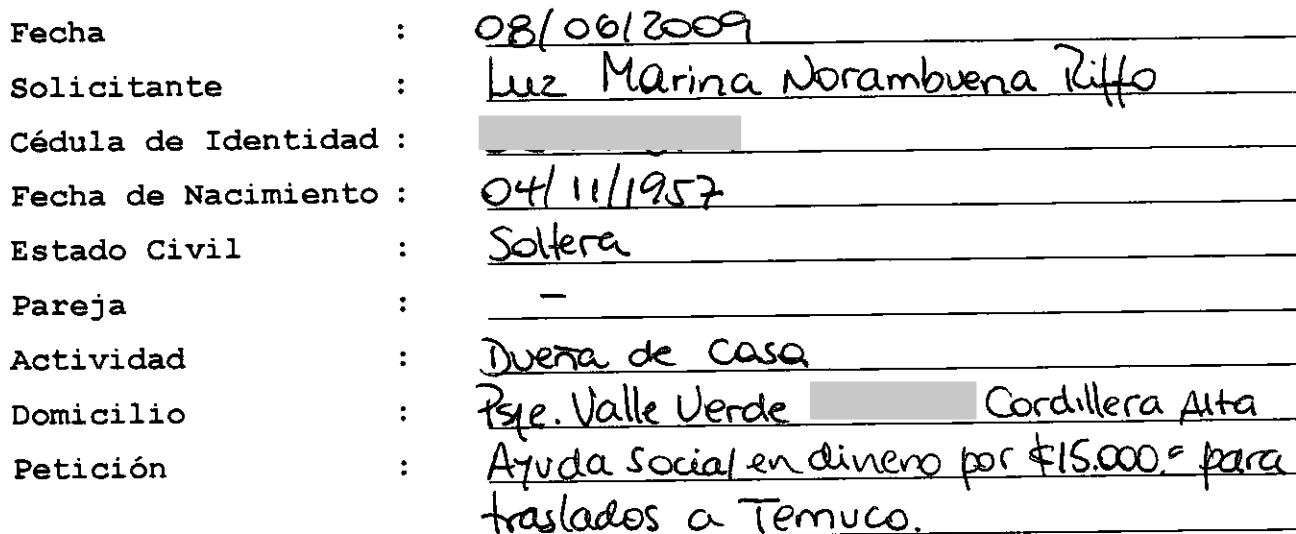 Fecha : 08/06/2009
Solicitante : Luz Marina Norambuena Riffo
Cédula de Identidad :
Fecha de Nacimiento : 04/11/1957
Estado Civil : Soltera
Pareja : –
Actividad : Dueña de casa
Domicilio : Psje. Valle Verde Cordillera Alta
Petición : Ayuda Social en dinero por $15.000.= para
traslados a Temuco.